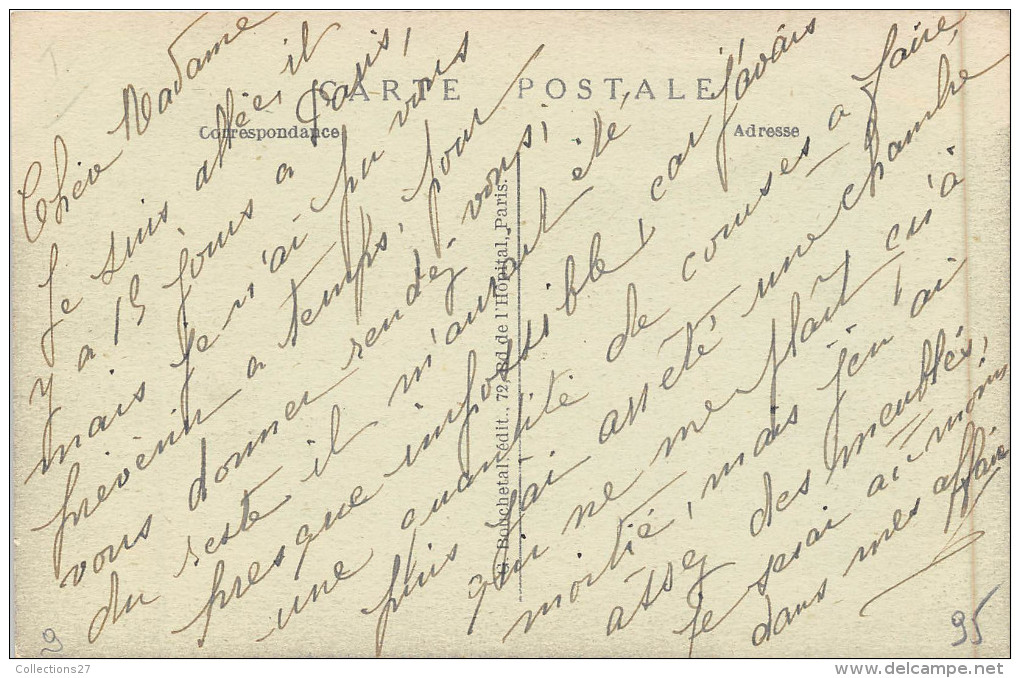 CARTE POSTALE
Correspondance
Adresse
G. Bouchetal, édit., 72, Bd de l'Hôpital, Paris.
Chère Madame
Je suis allée, il
y a 15 jours a Paris,
mais je n'ai pu vous
prévenir a temps, pour
vous donner rendez vous,
du reste il m'aurait été
presque impossible, car j'avais
une quantité de courses a faire,
puis j'ai arrêté, une chambre
qui ne me plait qu'à
moitié, mais j'en ai
assez des meublés,
je serai au moins
dans mes affaires
29
95
Collections27
delcampe.net